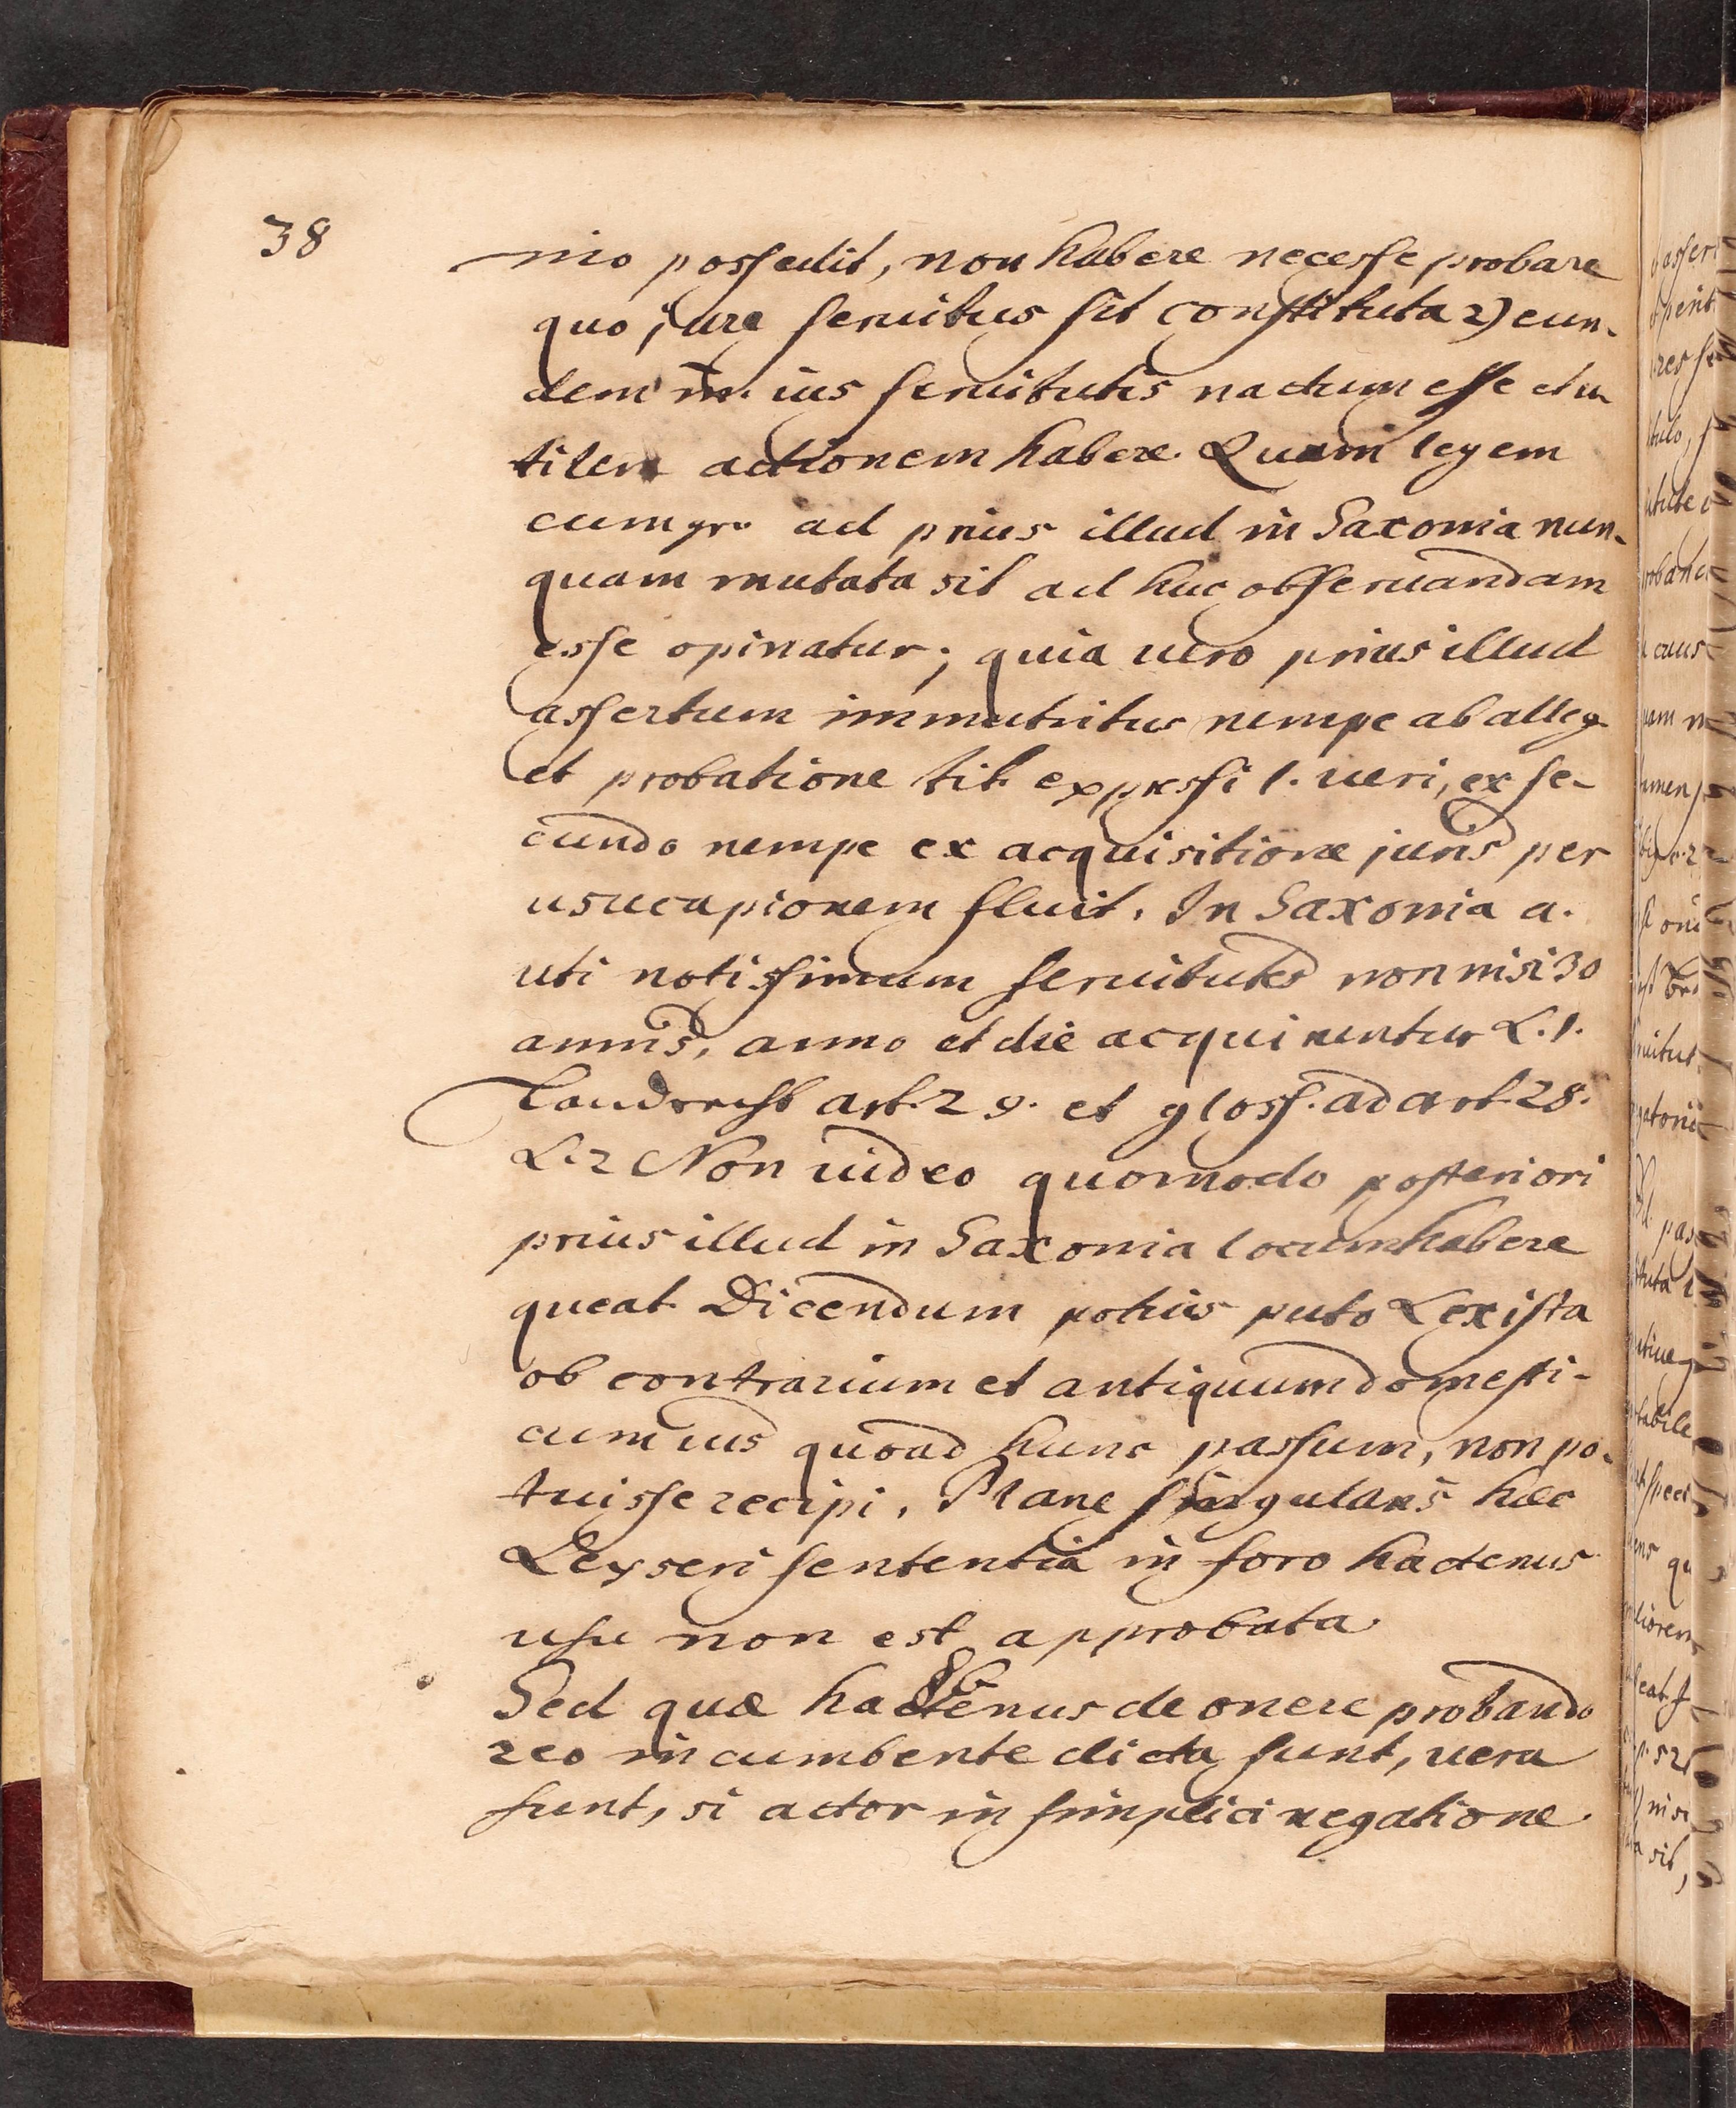 38
nio possedit, non habere necesse probare
quo jure seruitus sit constituta 2) eun-
dem m. ius seruitutis nactum esse et u-
tilem actionem habere. Quam legem
cum qv. ad prius illud in Saxonia nun-
quam mutata sit ad huc obseruandam
esse opinatur; quia uero prius illud
assertum immunitus nempe ab alleg.
et probatione tit. expressi l. ueri, ex se-
cundo nempe ex acquisitione juris per
usucapionem fluit. In Saxonia a.
uti notissimum seruitutes non nisi 30
annis, anno et die acquiruntur L. 1.
Landrecht art. 29. et gloss. ad art. 28.
L. 2 Non uideo quomodo posteriori
prius illud in Saxonia locum habere
queat. Dicendum potius puto Lex ista
ob contrarium et antiquum domesti-
cum ius quoad hunc passum, non po-
tuisse recipi. Plane singularis hæc
Leyseri sententia in foro hactenus
usu non est approbata.
Sed quæ hactenus de onere probando
reo incumbente dicta sunt, uera
sunt, si actor in simplici negatione